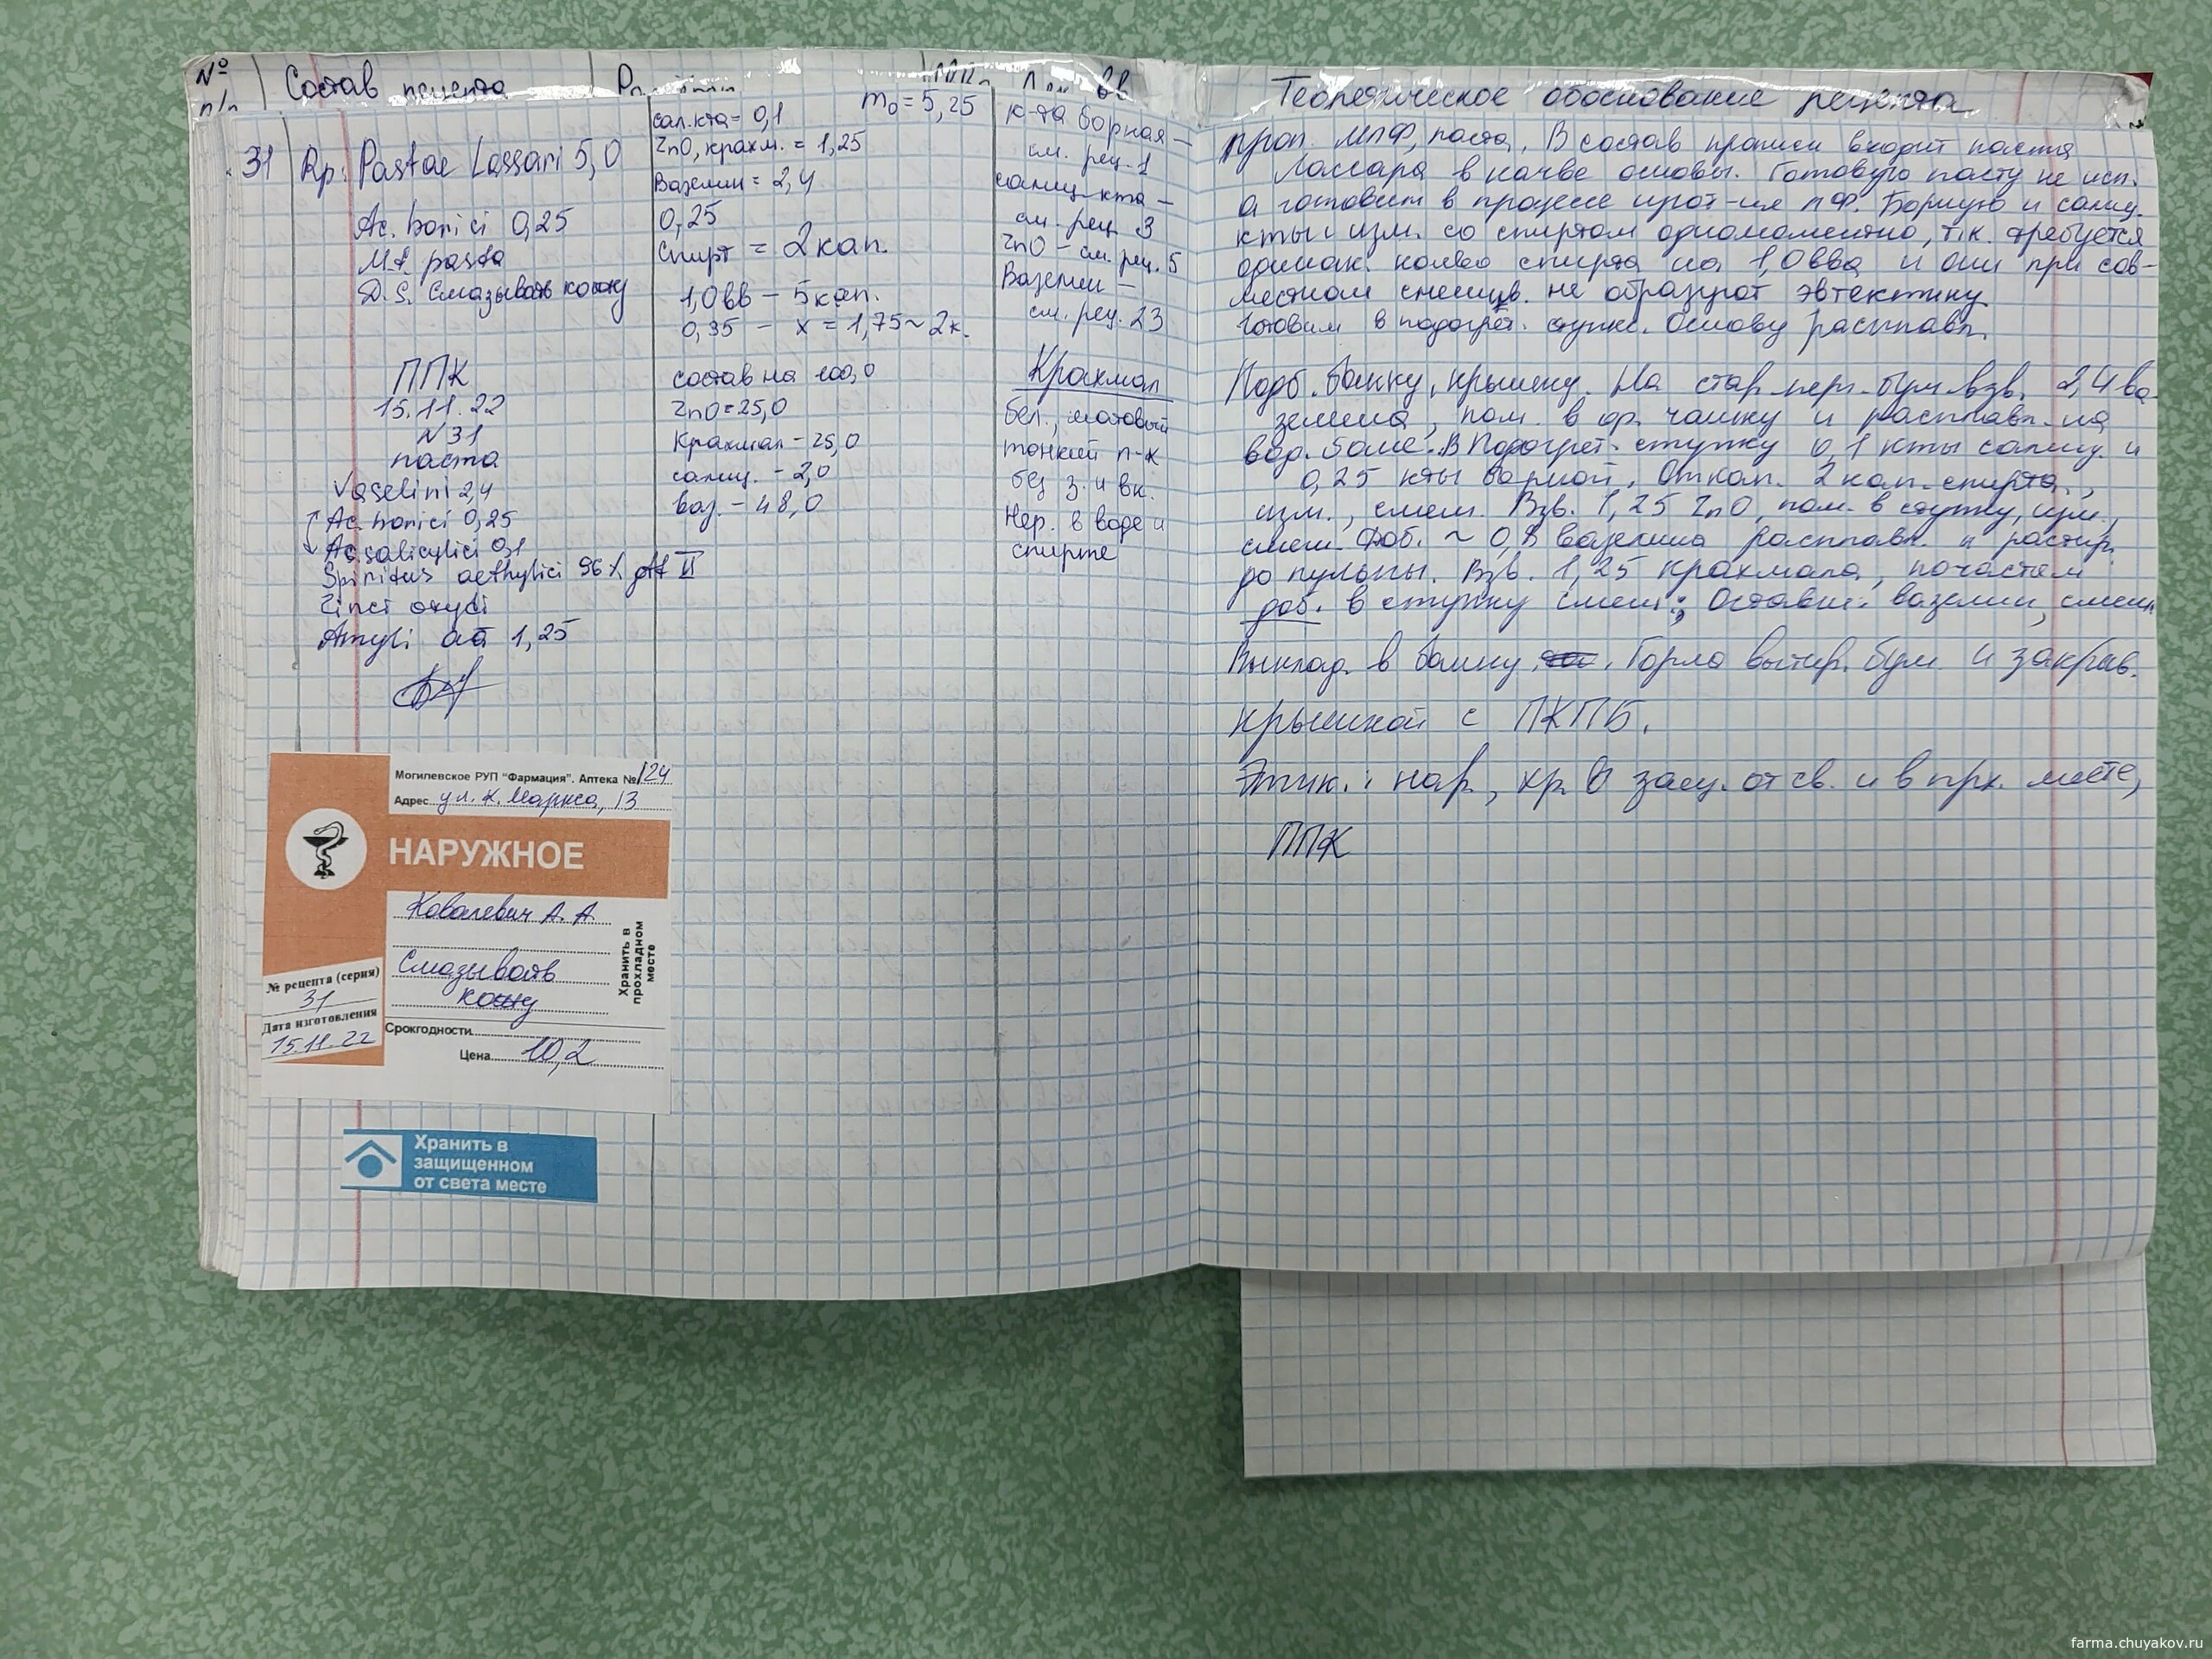 № п/п
Состав рецепта
Теоретическое обоснование рецепта
31
Rp: Pastae Lassari 5,0
Ac. borici 0,25
M.f. pasta
D.S. Смазывать кожу
ППК
15.11.22
N31
паста
Vaselini 2,4
Ac. borici 0,25
Ac. salicylici 0,1
Spiritus aethylici 96% gtt II
Zinci oxydi
Amyli aa 1,25
сал.к-та = 0,1
m₀ = 5,25
ZnO, крахм. = 1,25
Вазелин = 2,4
0,25
Спирт = 2 кап.
1,0 вв – 5 кап.
0,35 – x = 1,75 ~ 2 к.
состав на 100,0
ZnO = 25,0
Крахмал – 25,0
салиц. – 2,0
ваз. – 48,0
к-та борная –
см. рец. 1
салиц. к-та –
см. рец. 3
ZnO – см. рец. 5
Вазелин –
см. рец. 23
Крахмал
бел., матовый
тонкий п-к
без з. и вк.
Нер. в воде и
спирте
проп. МЛФ, паста. В состав прописи входит паста
Лассара в кач-ве основы. Готовую пасту не исп.
а готовит в процессе изгот-ия ЛФ. Борную и салиц.
к-ты изм. со спиртом одномоментно, т.к. требуется
одинак. кол-во спирта на 1,0 в-ва и они при сов-
местном смешив. не образуют эвтектику.
Готовим в подогрет. ступке. Основу расплавл.
Подб. банку, крышку. На стар. пер. бум. взв. 2,4 ва-
зелина, пом. в ф. чашку и расплавл. на
вод. бане. В подогрет. ступку 0,1 к-ты салиц. и
0,25 к-ты борной. Откап. 2 кап. спирта.,
изм., смеш. Взв. 1,25 ZnO, пом. в ступку, изм.,
смеш. Доб. ~ 0,8 вазелина расплавл. и растир.
до пульпы. Взв. 1,25 крахмала, по частям
доб. в ступку смеш.; Оставш. вазелин, смеш.
Выклад. в банку. Горло вытир. бум. и закрыв.
крышкой с ПКПБ.
Этик.: нар., хр. в защ. от св. и в прх. месте,
ППК
Могилевское РУП "Фармация". Аптека № 124
Адрес ул. К. Маркса, 13
НАРУЖНОЕ
Ковалевич А. А
Смазывать
кожу
Хранить в прохладном месте
№ рецепта (серия)
31
Дата изготовления
15.11.22
Срокгодности
Цена 10,2
Хранить в
защищенном
от света месте
farma.chuyakov.ru